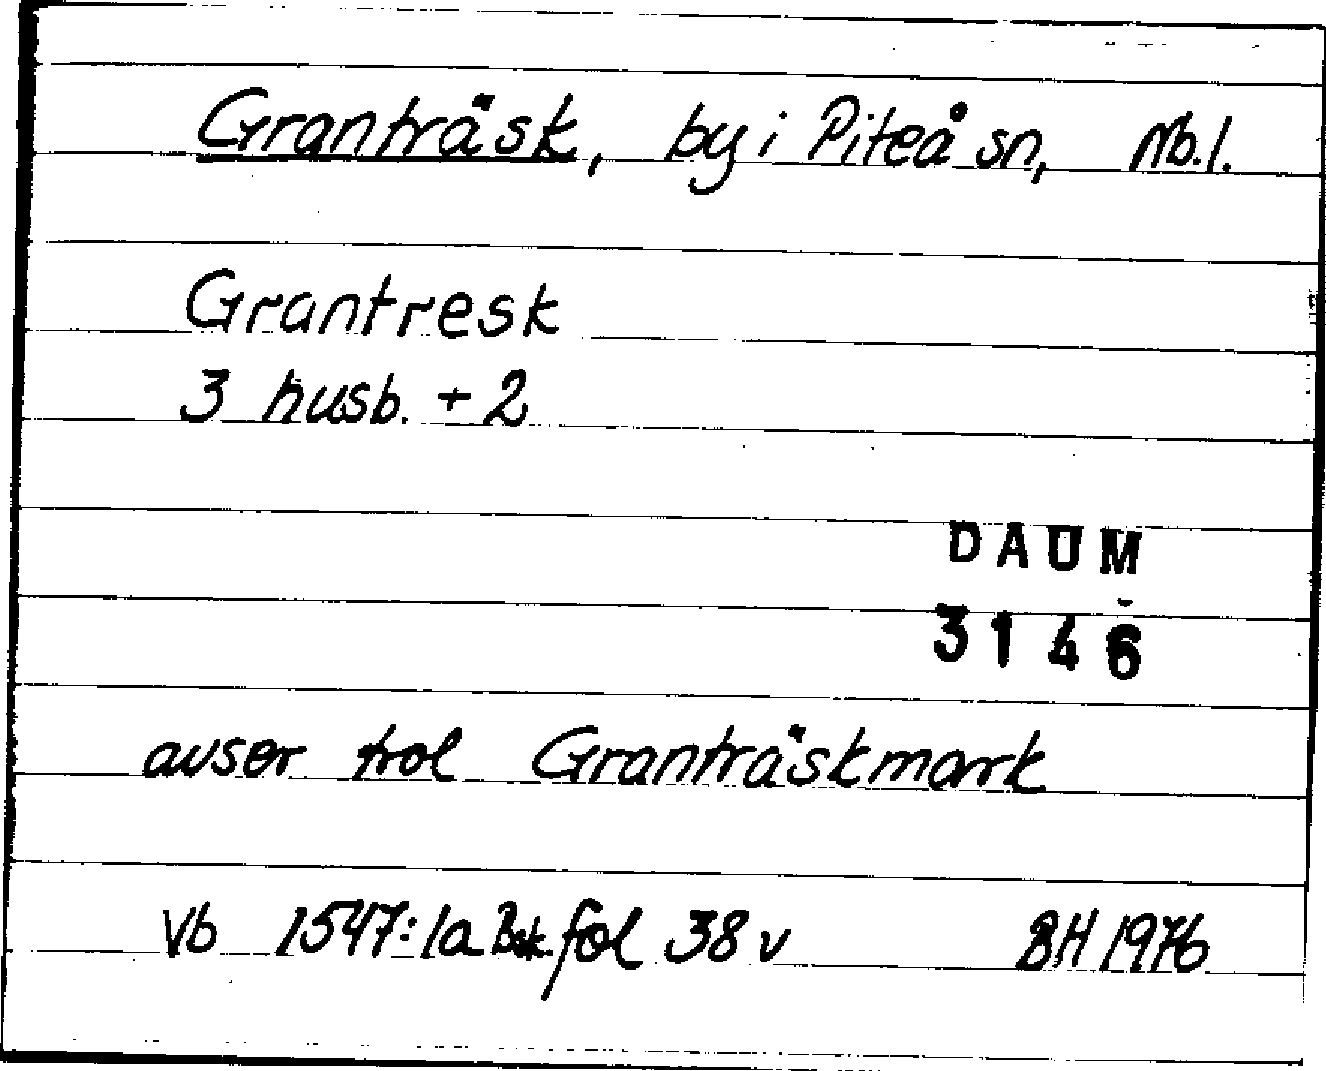 Granträsk, by i Piteå sn, Nb.l.
Grantresk
3 husb. + 2
DAUM
3146
avser trol Granträskmark
Vb 1547:1a Bsk. fol 38 v BH 1976